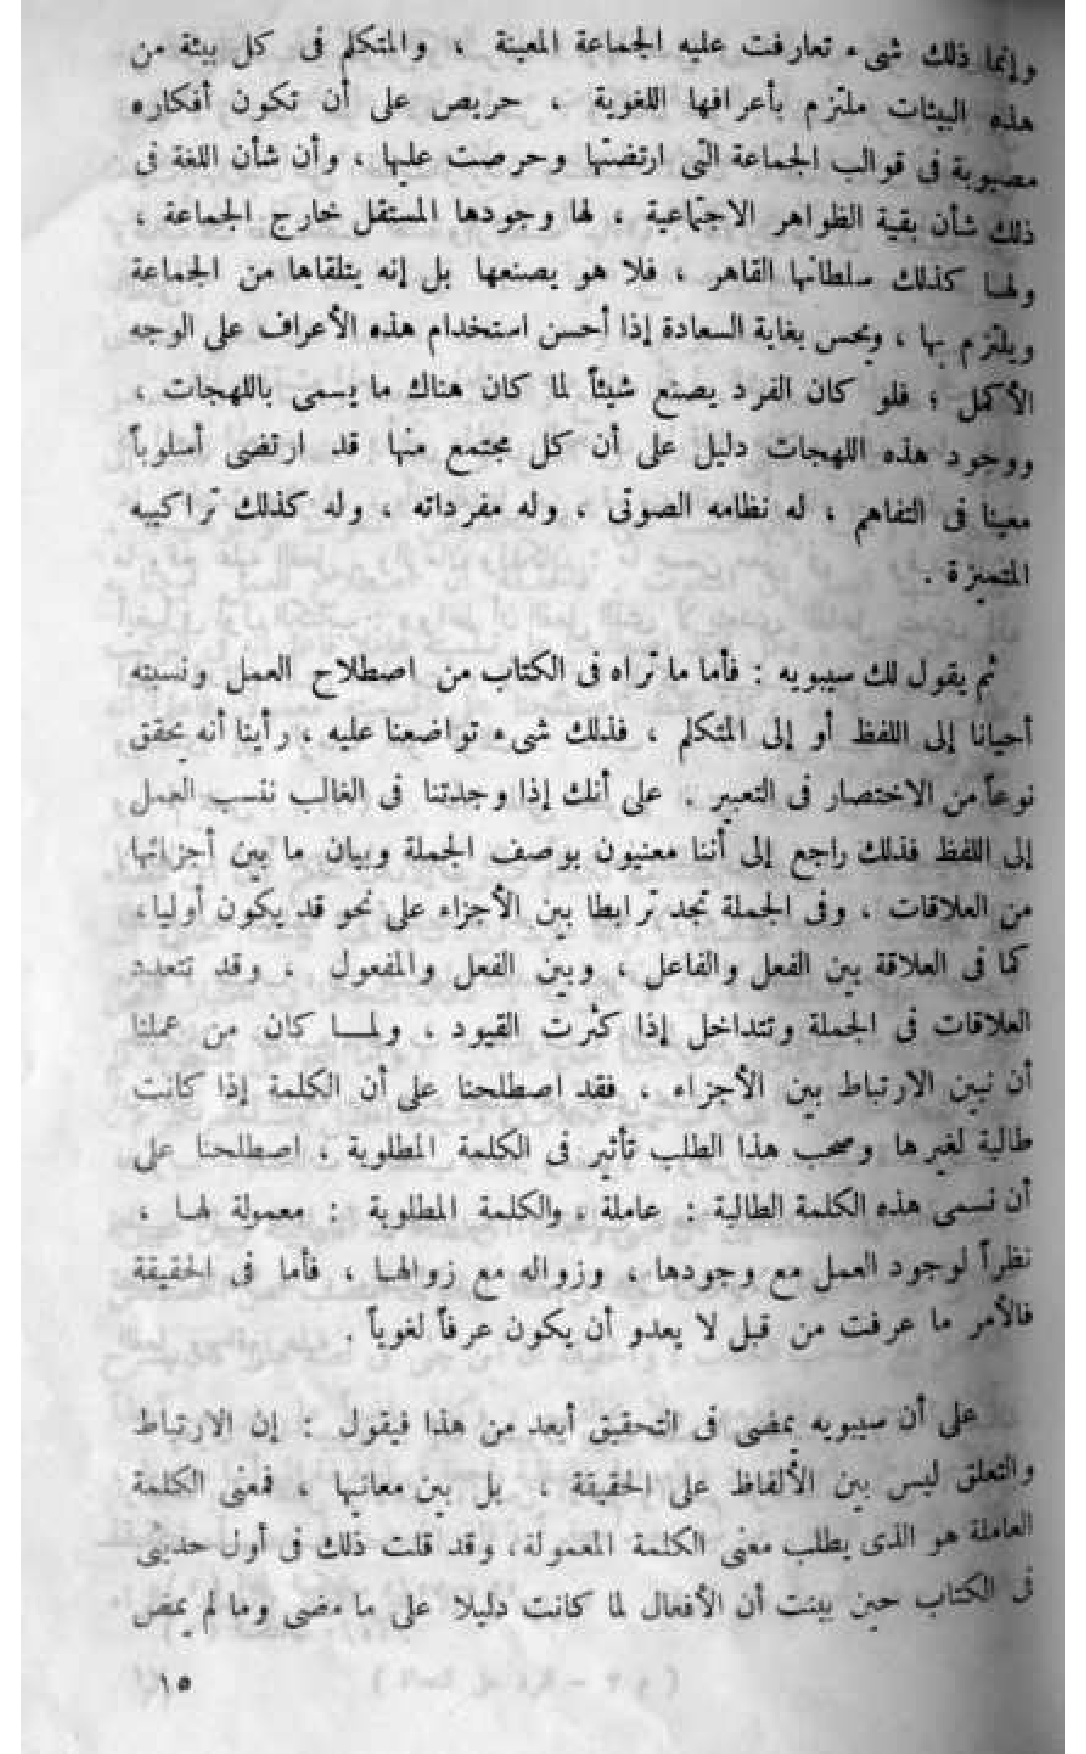 وإنما ذلك شىء تعارفت عليه الجماعة المعينة ، والمتكلم فى كل بيئة من
هذه البيئات ملتزم بأعرافها اللغوية ، حريص على أن تكون أفكاره
مصبوبة فى قوالب الجماعة التى ارتضتها وحرصت عليها ، وأن شأن اللغة فى
ذلك شأن بقية الظواهر الاجتماعية ، لها وجودها المستقل خارج الجماعة ،
ولها كذلك سلطانها القاهر ، فلا هو يصنعها بل إنه يتلقاها من الجماعة
ويلتزم بها ، ويحس بغاية السعادة إذا أحسن استخدام هذه الأعراف على الوجه
الأكمل ؛ فلو كان الفرد يصنع شيئاً لما كان هناك ما يسمى باللهجات ،
ووجود هذه اللهجات دليل على أن كل مجتمع منها قد ارتضى أسلوباً
معينا فى التفاهم ، له نظامه الصوتى ، وله مفرداته ، وله كذلك تراكيبه
المتميزة .
ثم يقول لك سيبويه : فأما ما تراه فى الكتاب من اصطلاح العمل ونسبته
أحيانا إلى اللفظ أو إلى المتكلم ، فذلك شىء تواضعنا عليه ، رأينا أنه يحقق
نوعاً من الاختصار فى التعبير . على أنك إذا وجدتنا فى الغالب ننسب العمل
إلى اللفظ فذلك راجع إلى أننا معنيون بوصف الجملة وبيان ما بين أجزائها
من العلاقات ، وفى الجملة تجد ترابطا بين الأجزاء على نحو قد يكون أوليا ،
كما فى العلاقة بين الفعل والفاعل ، وبين الفعل والمفعول ، وقد تتعدد
العلاقات فى الجملة وتتداخل إذا كثرت القيود . ولمــا كان من عملنا
أن نبين الارتباط بين الأجزاء ، فقد اصطلحنا على أن الكلمة إذا كانت
طالبة لغيرها وصحب هذا الطلب تأثير فى الكلمة المطلوبة ، اصطلحنا على
أن نسمى هذه الكلمة الطالبة : عاملة ، والكلمة المطلوبة : معمولة لهـا ،
نظراً لوجود العمل مع وجودها ، وزواله مع زوالهـا ، فأما فى الحقيقة
فالأمر ما عرفت من قبل لا يعدو أن يكون عرفاً لغوياً .
على أن سيبويه يمضى فى التحقيق أبعد من هذا فيقول : إن الارتباط
والتعلق ليس بين الألفاظ على الحقيقة ، بل بين معانيها ، فمعنى الكلمة
العاملة هو الذى يطلب معنى الكلمة المعمولة ، وقد قلت ذلك فى أول حديثى
فى الكتاب حين بينت أن الأفعال لما كانت دليلا على ما مضى وما لم يمض
١٥